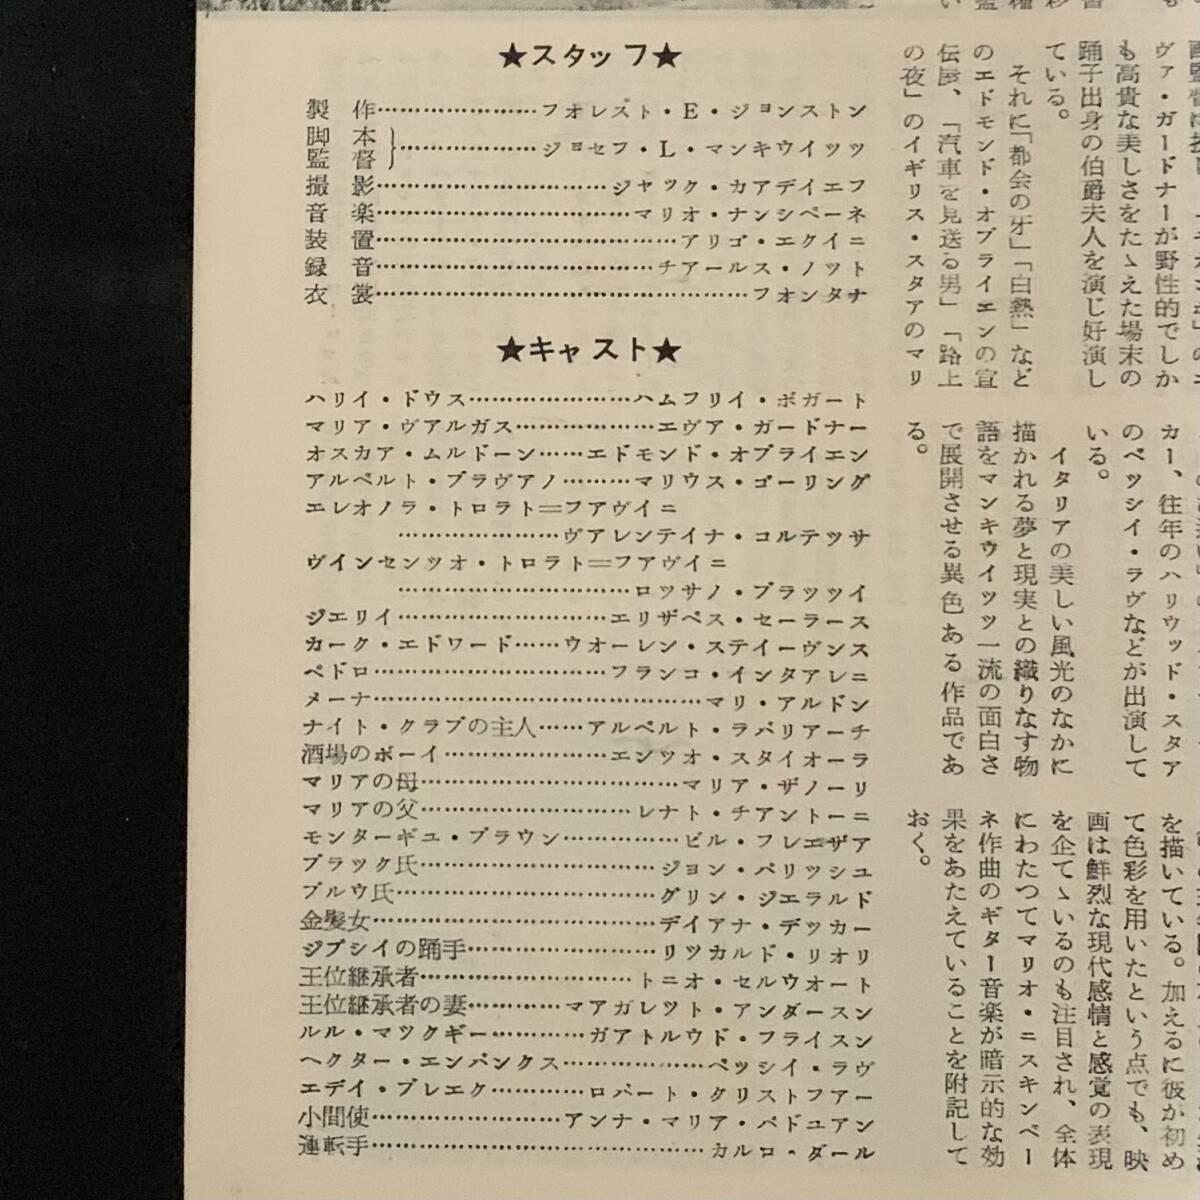 ★スタッフ★
製作………………フオレスト・E・ジョンストン
脚本
監督}………………ジョセフ・L・マンキウイッツ
撮影…………………………ジヤック・カアデイエフ
音楽……………………………マリオ・ナンシベーネ
装置…………………………………アリゴ・エクイニ
録音………………………………チアールス・ノット
衣裳…………………………………………フオンタナ
★キャスト★
ハリイ・ドウス…………………ハムフリイ・ボガート
マリア・ヴアルガス………………エヴア・ガードナー
オスカア・ムルドーン……エドモンド・オブライエン
アルベルト・ブラヴアノ………マリウス・ゴーリング
エレオノラ・トロラト＝フアヴイニ
…………………ヴアレンテイナ・コルテツサ
ヴインセンツオ・トロラト＝フアヴイニ
…………………………ロツサノ・ブラッツイ
ジエリイ………………………エリザベス・セーラース
カーク・エドワード……ウオーレン・ステイーヴンス
ペドロ…………………………フランコ・インタアレニ
メーナ……………………………………マリ・アルドン
ナイト・クラブの主人……アルベルト・ラバリアーチ
酒場のボーイ…………………エンツオ・スタイオーラ
マリアの母……………………………マリア・ザノーリ
マリアの父………………………レナト・チアントーニ
モンターギユ・ブラウン……………ビル・フレエザア
ブラック氏…………………………ジョン・パリッシユ
ブルウ氏……………………………グリン・ジエラルド
金髪女………………………………デイアナ・デッカー
ジプシイの踊手……………………リツカルド・リオリ
王位継承者………………………トニオ・セルウオート
王位継承者の妻…………マアガレツト・アンダースン
ルル・マツクギー…………ガアトルウド・フライスン
ヘクター・エンバンクス………………ベッシイ・ラヴ
エデイ・ブレエク…………ロバート・クリストフアー
小間使……………………アンナ・マリア・パドユアン
運転手……………………………………カルロ・ダール
ヴァ・ガードナーが野性的でしか
も高貴な美しさをたゝえた場末の
踊子出身の伯爵夫人を演じ好演し
ている。
それに「都会の牙」「白熱」など
のエドモンド・オブライエンの宣
伝屋、「汽車を見送る男」「路上
の夜」のイギリス・スタアのマリ
カー、往年のハリウッド・スタア
のベッシイ・ラヴなどが出演して
いる。
イタリアの美しい風光のなかに
描かれる夢と現実との織りなす物
語をマンキウイッツ一流の面白さ
で展開させる異色ある作品であ
る。
を描いている。加えるに彼が初め
て色彩を用いたという点でも、映
画は鮮烈な現代感情と感覚の表現
を企てゝいるのも注目され、全体
にわたつてマリオ・ニスキンベー
ネ作曲のギター音楽が暗示的な効
果をあたえていることを附記して
おく。